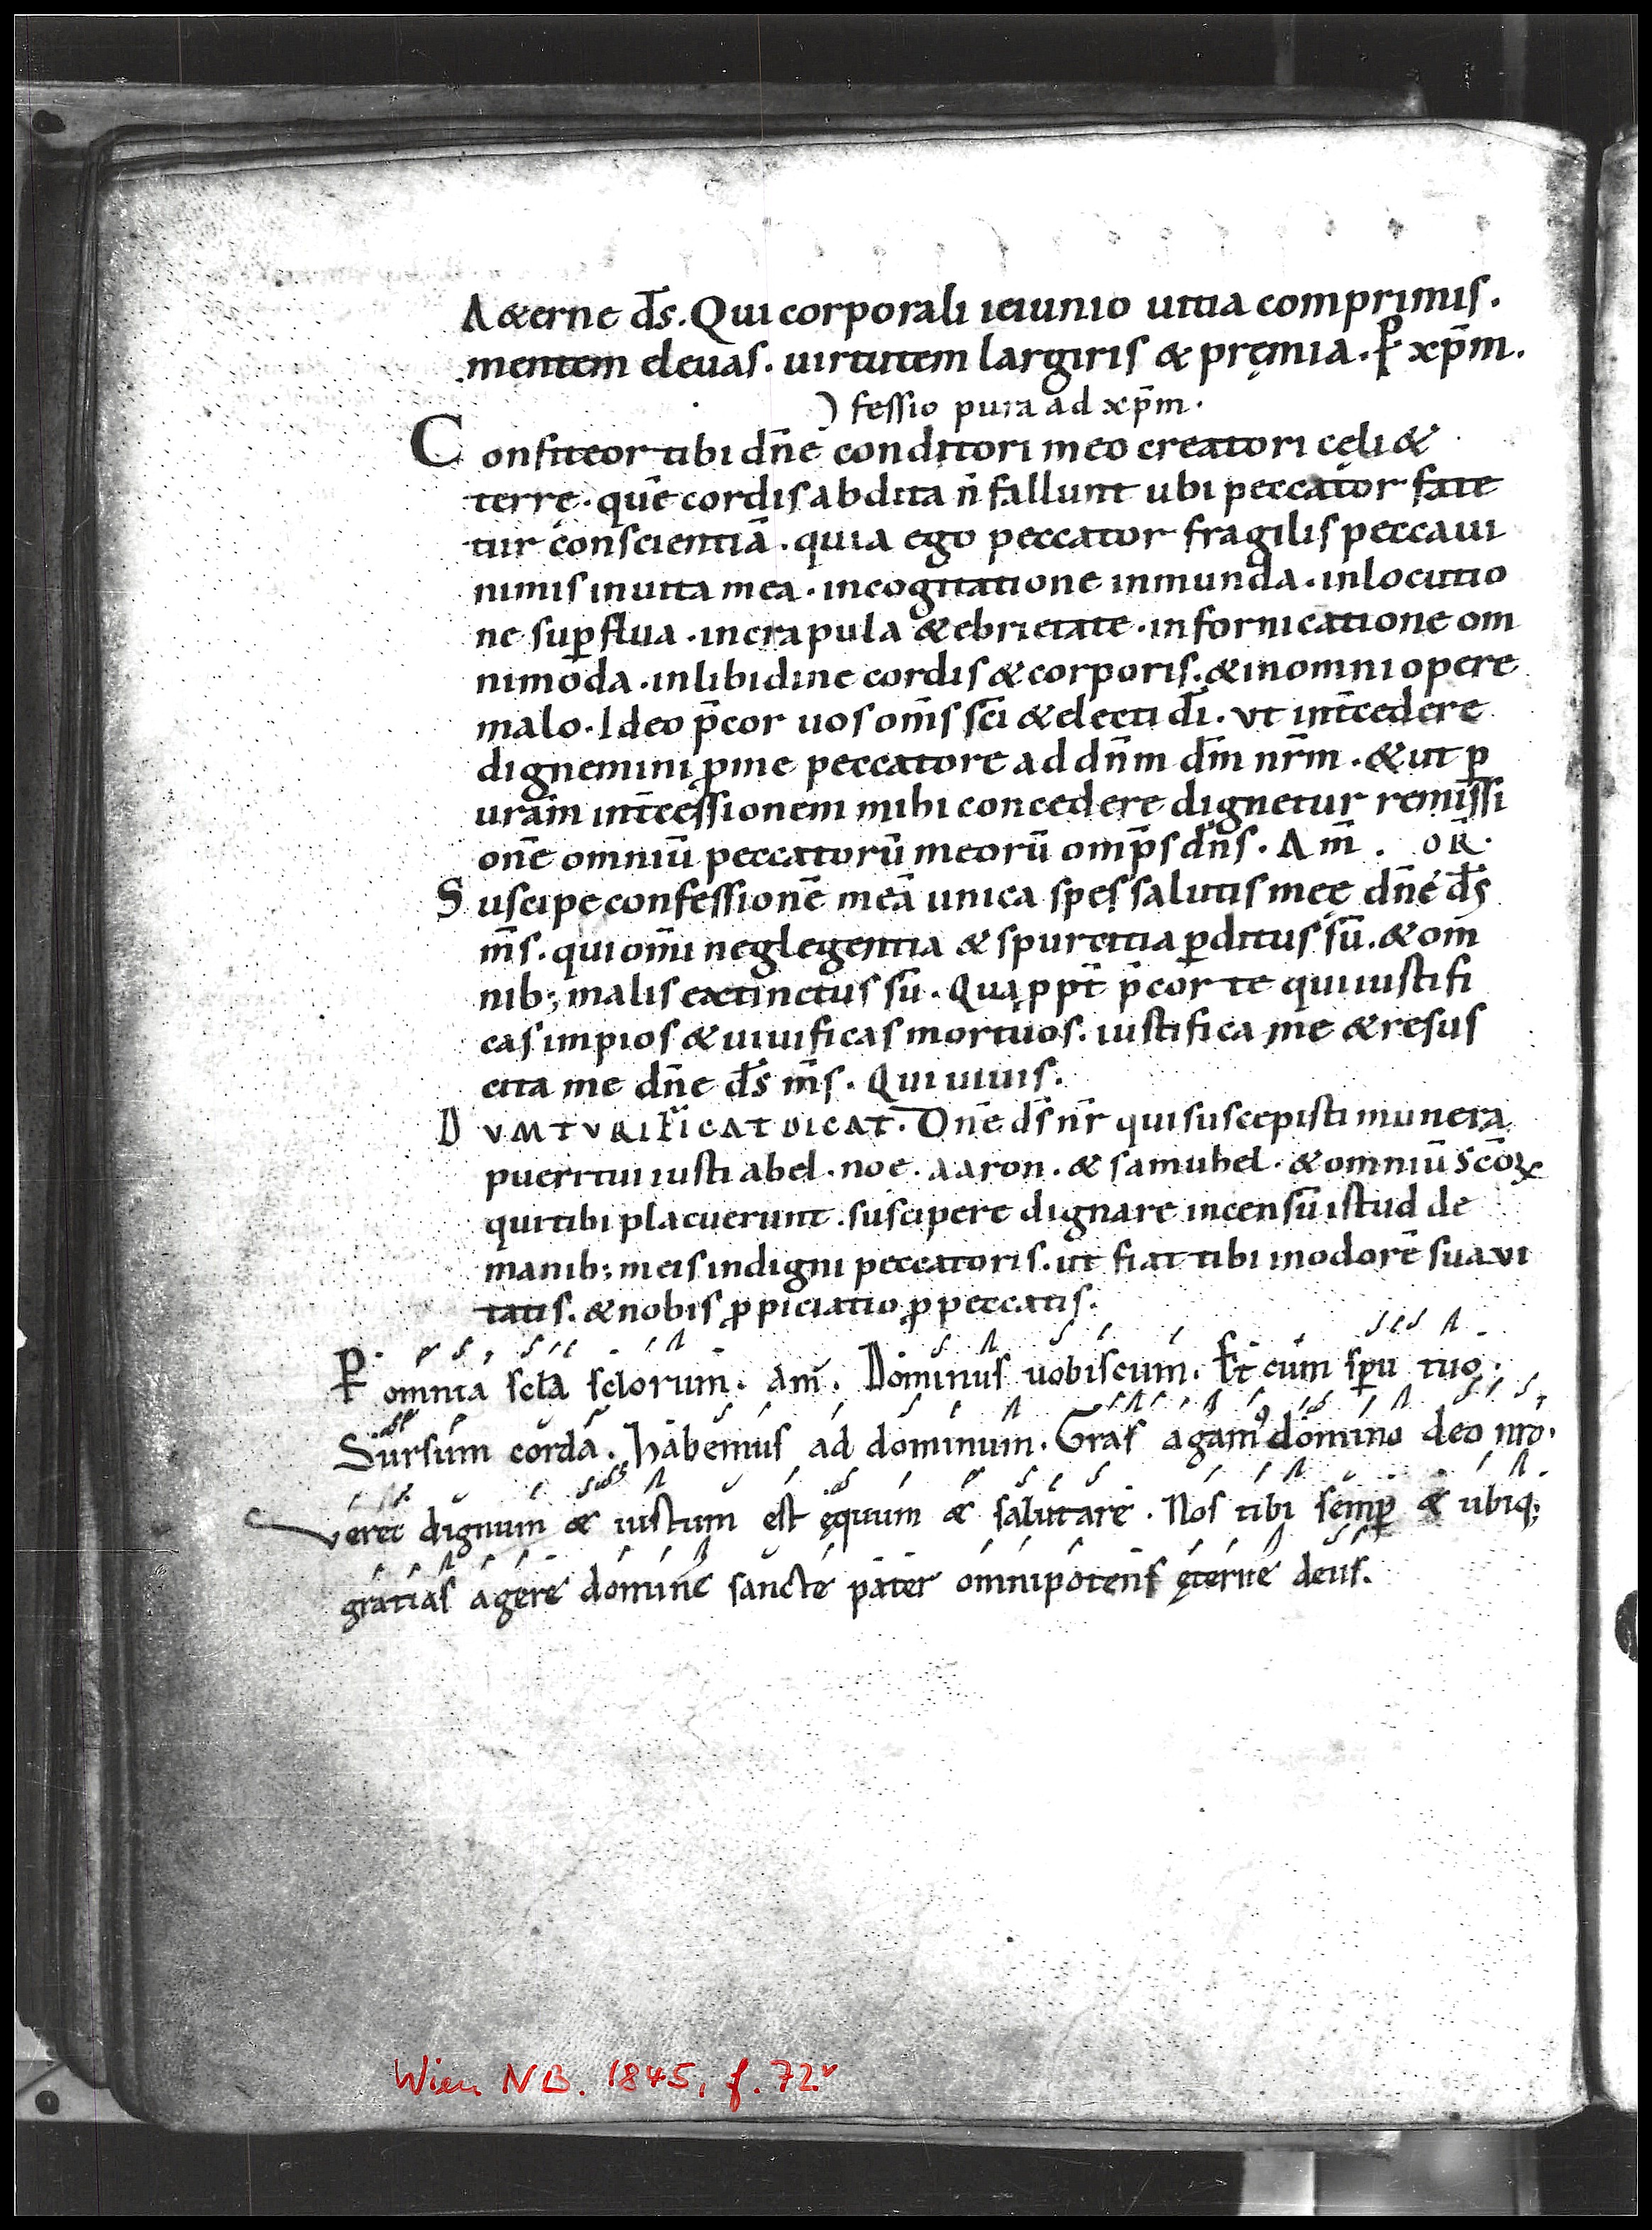 Λ&erne d̄s. Qui corporali ieiunio uitia comprimis.
mentem eleuas. uirtutem largiris & pręmia. P xp̄m.
Ↄ fessio pura ad xp̄m.
Confiteor tibi dn̄e conditori meo creatori cęli &
terrę. quē cordis abdita n̄ fallunt ubi peccator fate
tur conscientiā. quia ego peccator fragilis peccaui
nimis in uita mea. in cogitatione inmunda. in locutio
ne sup̱flua. in crapula & ebrietate. in fornicatione om
nimoda. in libidine cordis & corporis. & in omni opere
malo. Ideo p̄cor uos om̄s sc̄i & electi dī. Vt int̄cedere
dignemini ꝓ me peccatore ad dn̄m dm̄ nr̄m. & ut ꝑ
uram̄ int̄cessionem mihi concedere dignetur remissi
onē omniū peccatorū meorū omp̄s dn̄s. Am̄. OR̄.
Suscipe confessionē meā unica spes salutis meę dn̄e d̄s
m̄s. qui om̄i neglegentia & spurcitia ꝑditus sū. & om̄
nib; malis extinctus sū. Quaꝓpt̄ p̄cor te qui iustifi
cas impios & uiuificas mortuos. iustifica me & resus
cita me dn̄e d̄s m̄s. Qui uiuis.
DVM TVRIFICAT DICAT. Dn̄e d̄s nr̄ qui suscepisti munera
pueri tui iusti abel. noe. aaron. & samuhel. & omniū sc̄oꝝ
qui tibi placuerunt. suscipere dignare incensū istud de
manib; meis indigni peccatoris. ut fiat tibi in odorē suaui
tatis. & nobis ꝓpiciatio ꝓ peccatis.
P omnia sc̄la sc̄lorum. am̄. Dominus uobiscum. Et cum sp̄u tuo.
Sursum corda. Habemus ad dominum. Gr̄as agamꝰ domino deo nr̄o.
Vere dignum & iustum est ęquum & salutare. Nos tibi semꝑ & ubiq;
gratias agere domine sancte pater omnipotens ęterne deus.
Wien NB. 1845, f. 72v